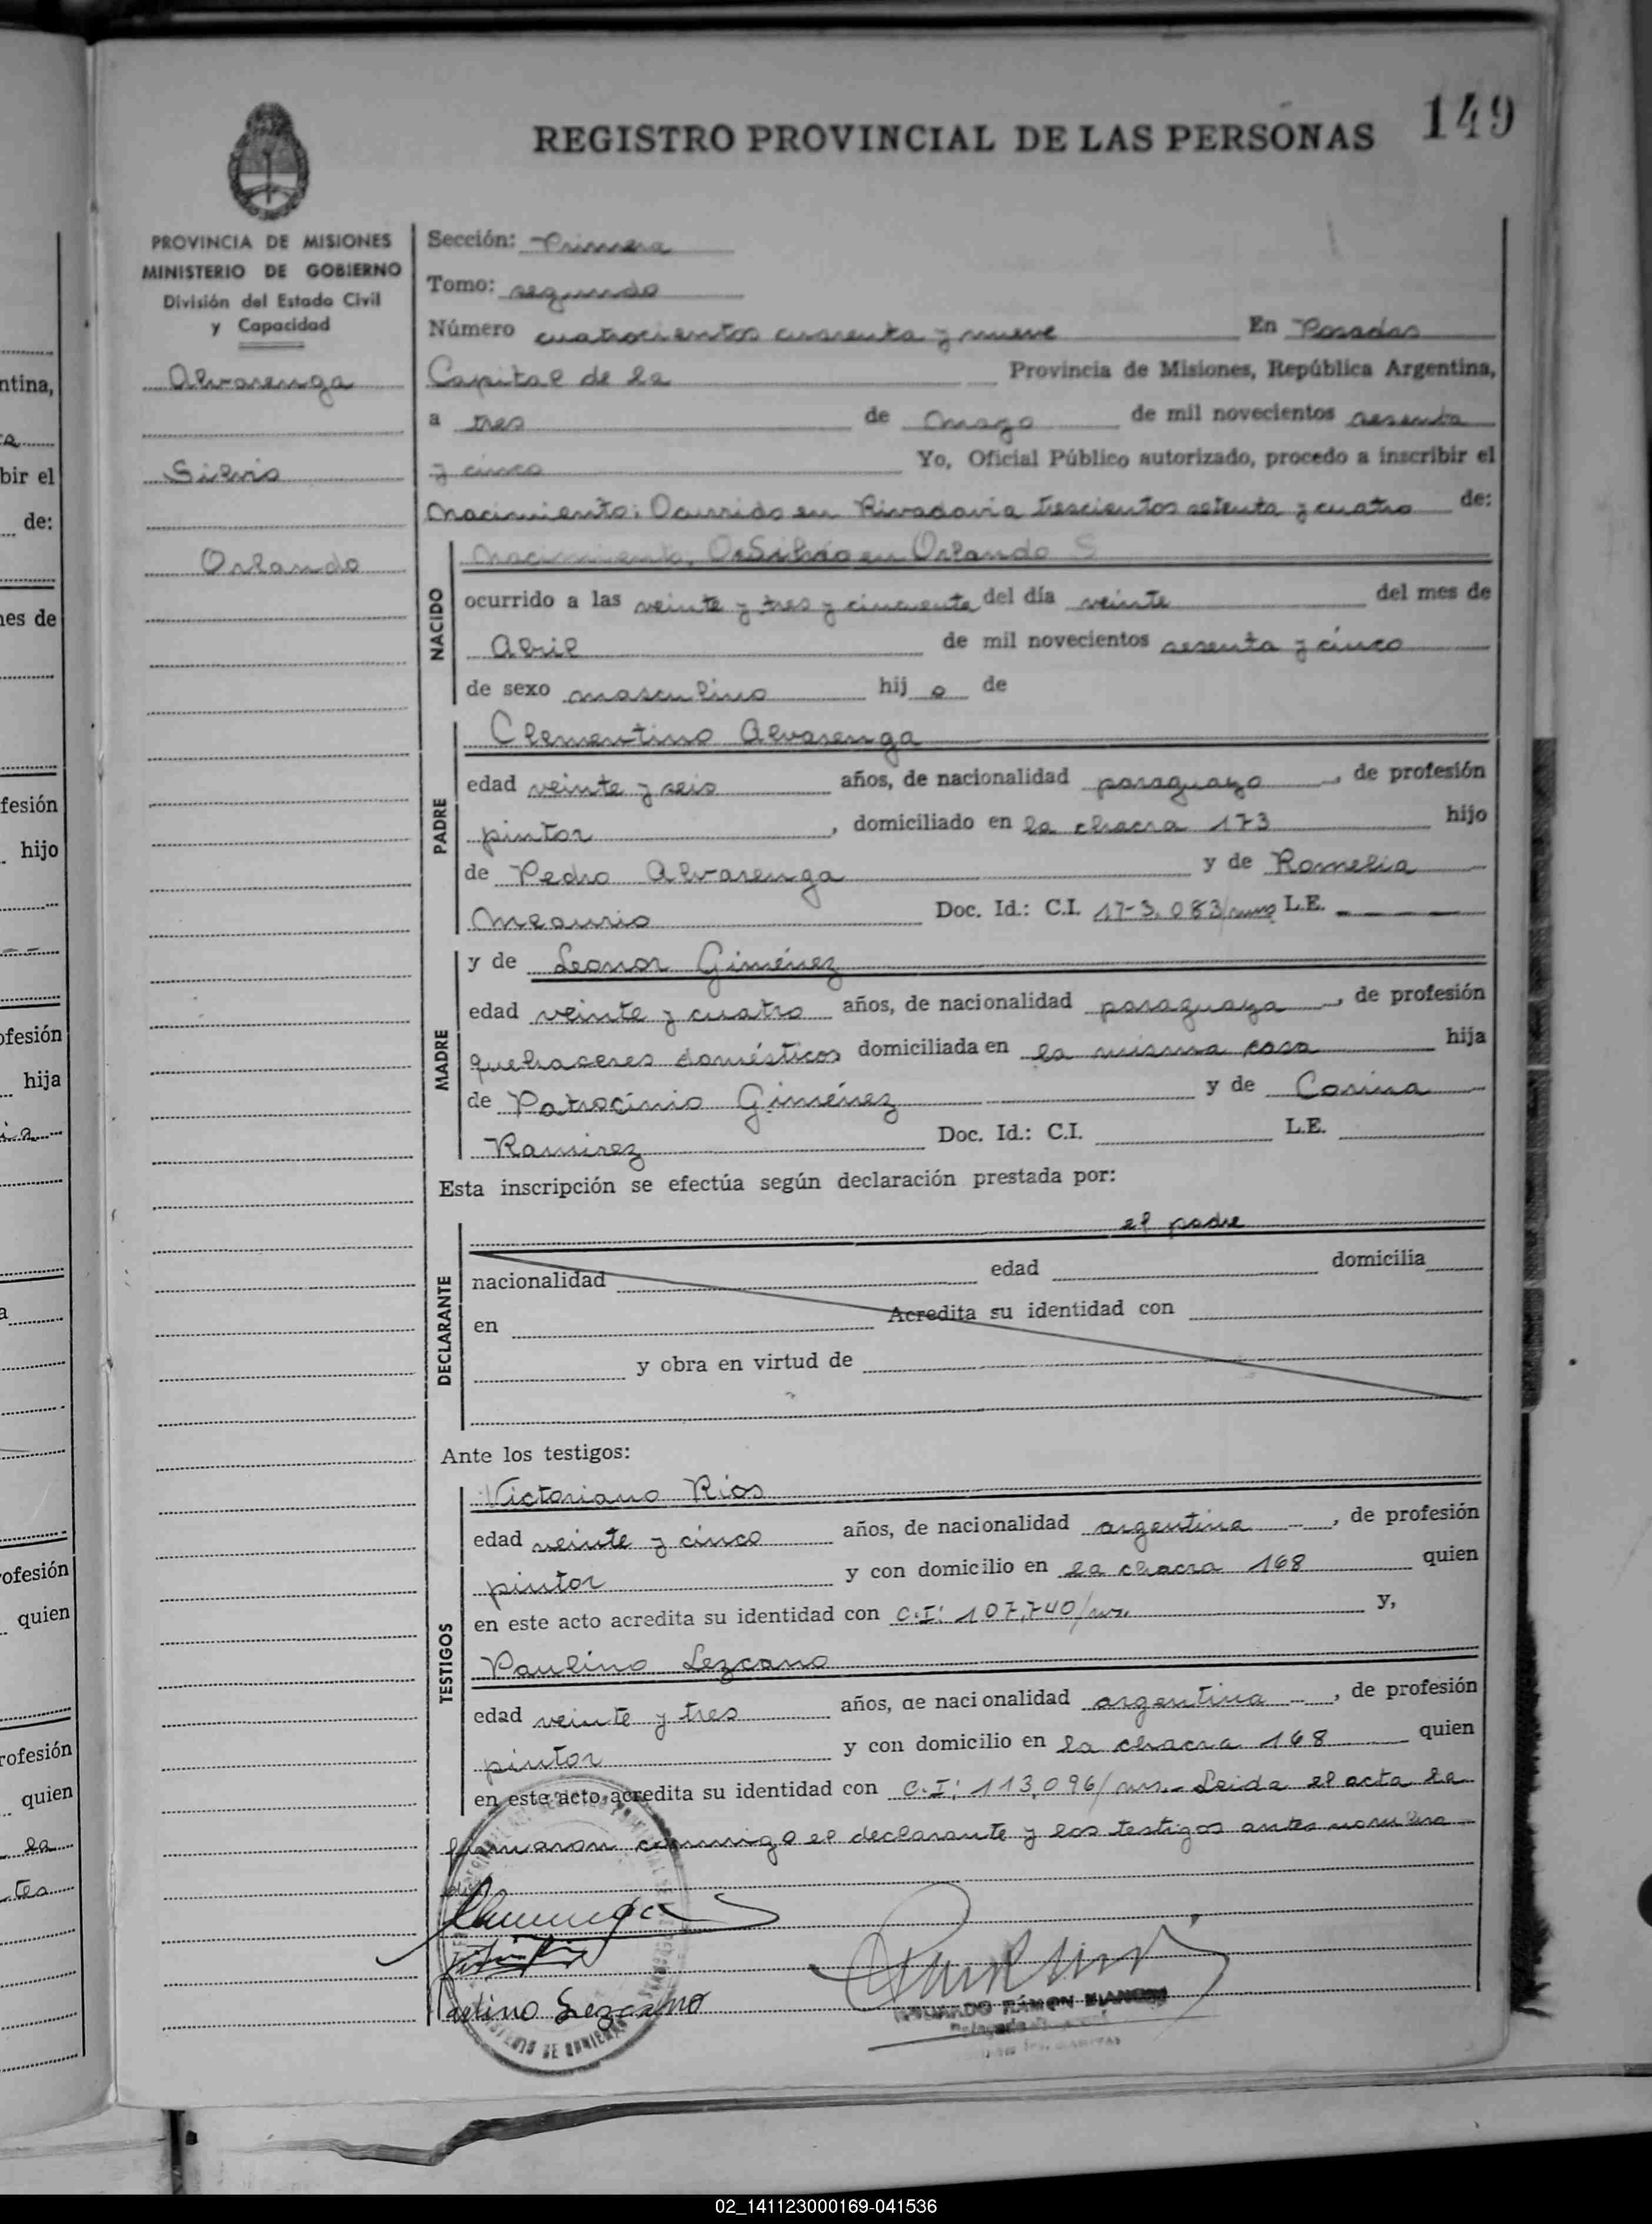 149
REGISTRO PROVINCIAL DE LAS PERSONAS
PROVINCIA DE MISIONES
MINISTERIO DE GOBIERNO
División del Estado Civil
y Capacidad
Alvarenga
Silvio
Orlando
Sección: Primera
Tomo: segundo
Número cuatrocientos cuarenta y nueve En Posadas
Capital de la Provincia de Misiones, República Argentina,
a tres de Mayo de mil novecientos sesenta
y cinco Yo, Oficial Público autorizado, procedo a inscribir el
Nacimiento: Ocurrido en Rivadavia trescientos setenta y cuatro de:
NACIDO
Silvio Orlando
ocurrido a las veinte y tres y cincuenta del día veinte del mes de
Abril de mil novecientos sesenta y cinco
de sexo masculino hij o de
PADRE
Clementino Alvarenga
edad veinte y seis años, de nacionalidad paraguayo, de profesión
pintor, domiciliado en la chacra 173 hijo
de Pedro Alvarenga y de Romelia
Meaurio Doc. Id.: C.I. 17-3.083/mns L.E.
MADRE
y de Leonor Giménez
edad veinte y cuatro años, de nacionalidad paraguaya, de profesión
quehaceres domésticos domiciliada en la misma casa hija
de Patrocinio Giménez y de Corina
Ramirez Doc. Id.: C.I. L.E.
Esta inscripción se efectúa según declaración prestada por:
DECLARANTE
el padre
nacionalidad edad domicilia
en Acredita su identidad con
y obra en virtud de
Ante los testigos:
TESTIGOS
Victoriano Ríos
edad veinte y cinco años, de nacionalidad argentina, de profesión
pintor y con domicilio en la chacra 168 quien
en este acto acredita su identidad con C.I: 107,740/ms. y,
Paulino Lezcano
edad veinte y tres años, de nacionalidad argentina, de profesión
pintor y con domicilio en la chacra 168 quien
en este acto acredita su identidad con C.I: 113,096/ms. Leida el acta la
firmaron conmigo el declarante y los testigos antes nombra
Paulino Lezcano
RAMON
02_141123000169-041536